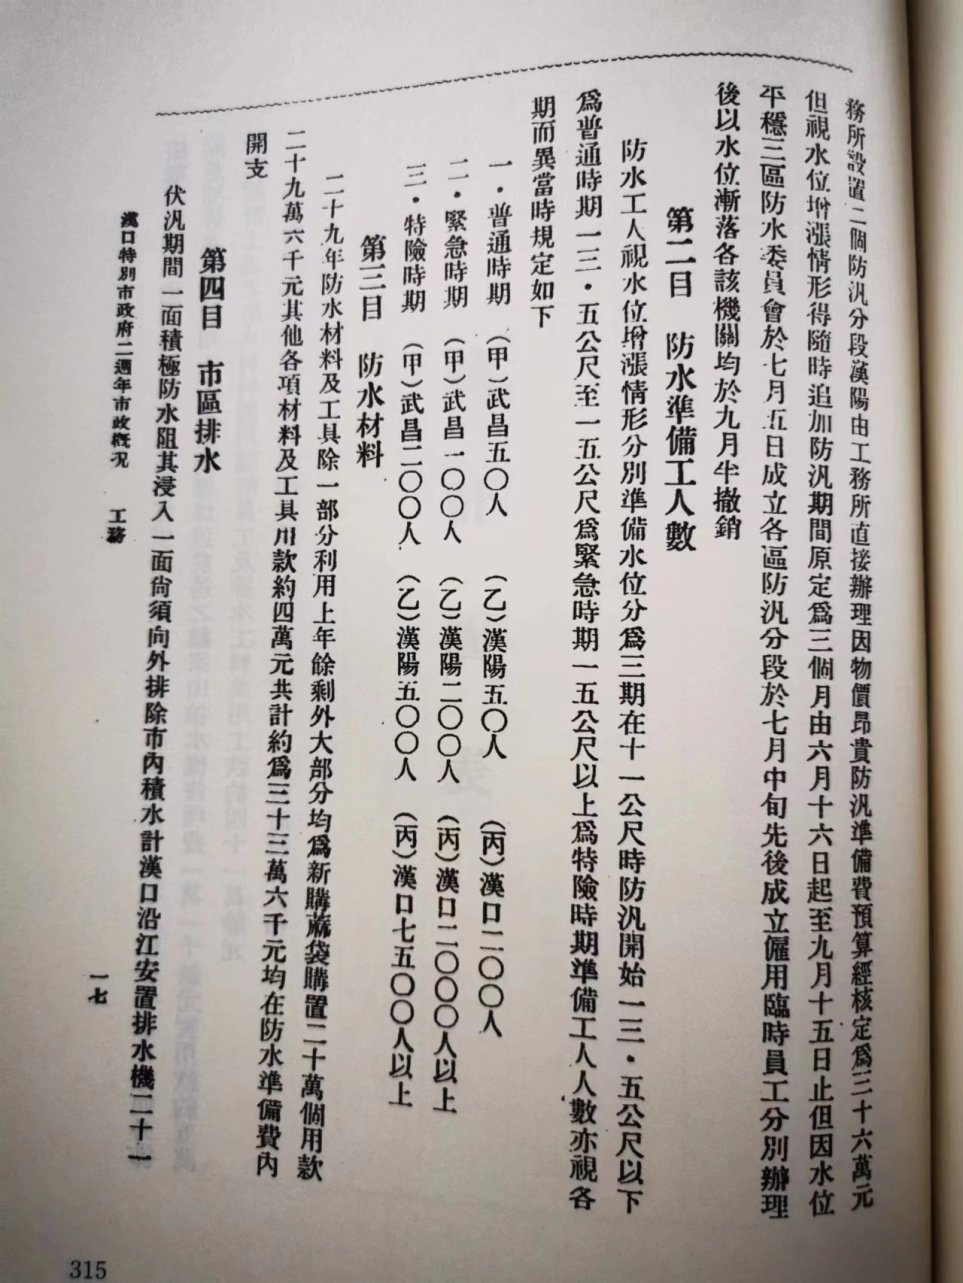 務所設置二個防汛分段漢陽由工務所直接辦理因物價昂貴防汛準備費預算經核定爲三十六萬元
但視水位增漲情形得隨時追加防汛期間原定爲三個月由六月十六日起至九月十五日止但因水位
平穩三區防水委員會於七月五日成立各區防汛分段於七月中旬先後成立僱用臨時員工分別辦理
後以水位漸落各該機關均於九月半撤銷
第二目　防水準備工人數
防水工人視水位增漲情形分別準備水位分爲三期在十一公尺時防汛開始一三・五公尺以下
爲普通時期一三・五公尺至一五公尺爲緊急時期一五公尺以上爲特險時期準備工人人數亦視各
期而異當時規定如下
一・普通時期　（甲）武昌五〇人　（乙）漢陽五〇人　（丙）漢口二〇〇人
二・緊急時期　（甲）武昌一〇〇人　（乙）漢陽二〇〇人　（丙）漢口二〇〇〇人以上
三・特險時期　（甲）武昌二〇〇人　（乙）漢陽五〇〇人　（丙）漢口七五〇〇人以上
第三目　防水材料
二十九年防水材料及工具除一部分利用上年餘剩外大部分均爲新購蔴袋購置二十萬個用款
二十九萬六千元其他各項材料及工具用款約四萬元共計約爲三十三萬六千元均在防水準備費內
開支
第四目　市區排水
伏汛期間一面積極防水阻其浸入一面尙須向外排除市內積水計漢口沿江安置排水機二十一
漢口特別市政府二週年市政概況　工務
一七
315